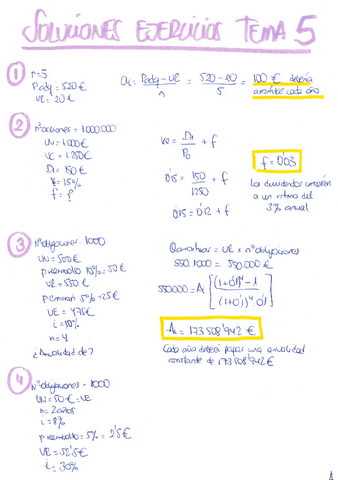 SOLUCIONES EJERCICIOS TEMA 5
1
n=5
Padq = 520€
VR = 20€
a = Padq - VR / n = 520 - 20 / 5 = 100 € debería
amortizar cada año
2
nº acciones = 1000000
VN = 1000€
VC = 1.250€
D1 = 150€
K = 15%
f = ?
Ke = D1 / P0 + f
0'15 = 150 / 1250 + f
0'15 = 0'12 + f
f = 0'03
Los dividendos crecerán
a un ritmo del
3% anual
3
Nº obligaciones = 1000
VN = 500€
p reembolso 10% = 50€
VR = 550€
p emisión 5% = 25€
VE = 475€
i = 10%
n = 4
¿Anualidad de?
Q amortizar = VR x nº obligaciones
550.1000 = 550000€
550000 = A [ (1+0'1)⁴ - 1 / (1+0'1)⁴ 0'1 ]
A = 173508'942 €
Cada año deberá pagar una anualidad
constante de 173508'942€
4
Nº obligaciones = 1000
VN = 50€ = VE
n = 2 años
i = 8%
p reembolso = 5% = 2'5€
VR = 52'5€
t = 30%
1